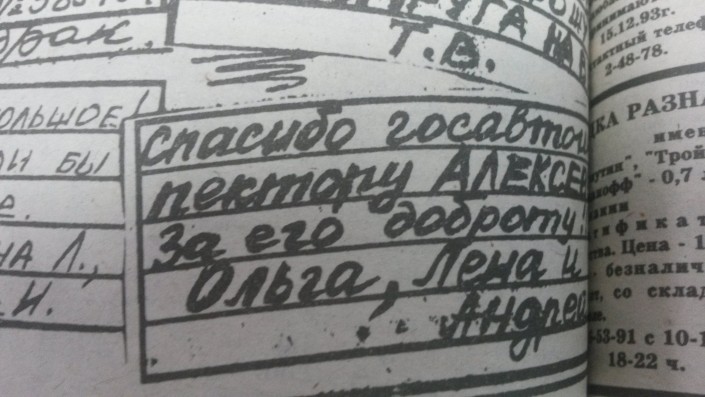 брак.
РУГА НА В
Т.В.
ОЛЬШОЕ!
ОЙ БЫ
е.
НА Л.,
Н.
спасибо госавтои
пектору АЛЕКСЕЕ
За его доброту!
Ольга, Лена и
Андрей
15.12.93г.
тактный телеф
2-48-78.
КА РАЗНА
имен
путин", "Трой
нофф" - 0,7 л
пании
тификат
тва. Цена - 1
безналич
, со склад
-53-91 с 10-1
18-22 ч.